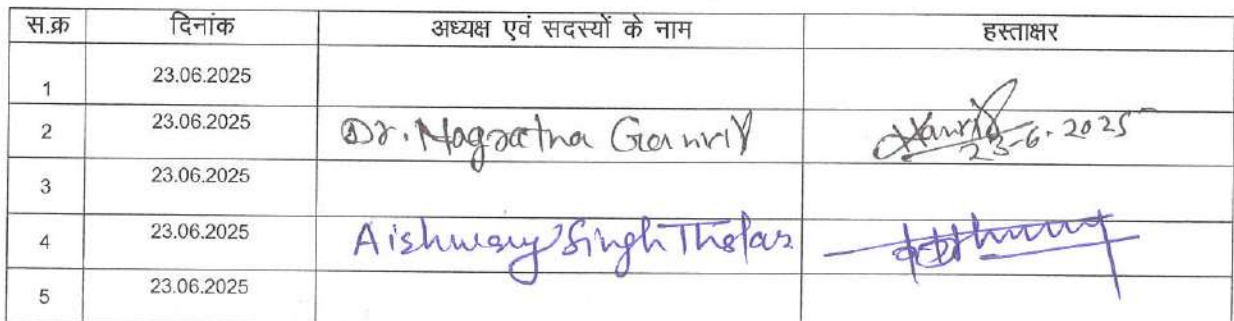 स.क्र दिनांक अध्यक्ष एवं सदस्यों के नाम हस्ताक्षर
1 23.06.2025
2 23.06.2025 Dr. Nagratna 23-6-2025
3 23.06.2025
4 23.06.2025 Singh
5 23.06.2025